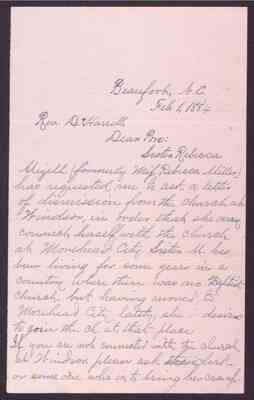 Beaufort, N.C.
Feb 1, 1884
Rev. D. Harrell
Dear Bro:
Sister Rebecca
Mizell (formerly Miss Rebecca Miller)
has requested me to ask a letter
of dismission from the church at
Windsor, in order that she may
connect herself with the church
at Morehead City. Sister M. has
been living for some years in a
country where there was no Baptist
church, but having moved to
Morehead City lately, she desires
to join the ch. at that place.
If you are not connected with the church
at Windsor please ask clerk
or some one who is to bring her case